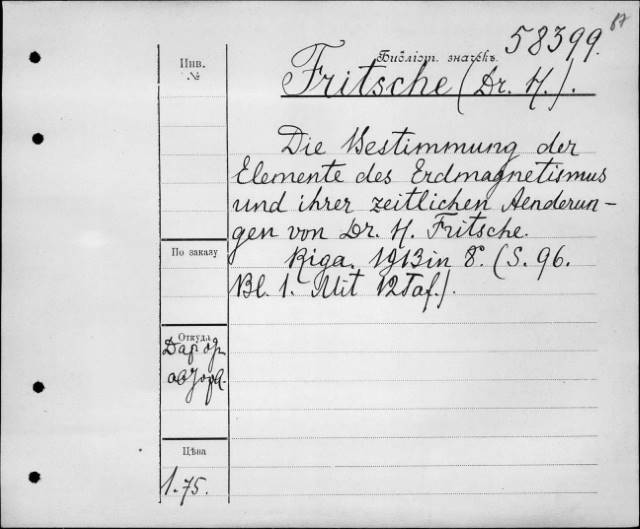 87
58399.
Библіот. значекъ.
Инв.
№
Fritsche (Dr. H.).
Die Bestimmung der
Elemente des Erdmagnetismus
und ihrer zeitlichen Aenderun-
gen von Dr. H. Fritsche.
По заказу
Riga. 1913 in 8°. (S. 96.
Bl. 1. Mit 12 Taf.).
Откуда
Даръ
Цѣна
1.75.